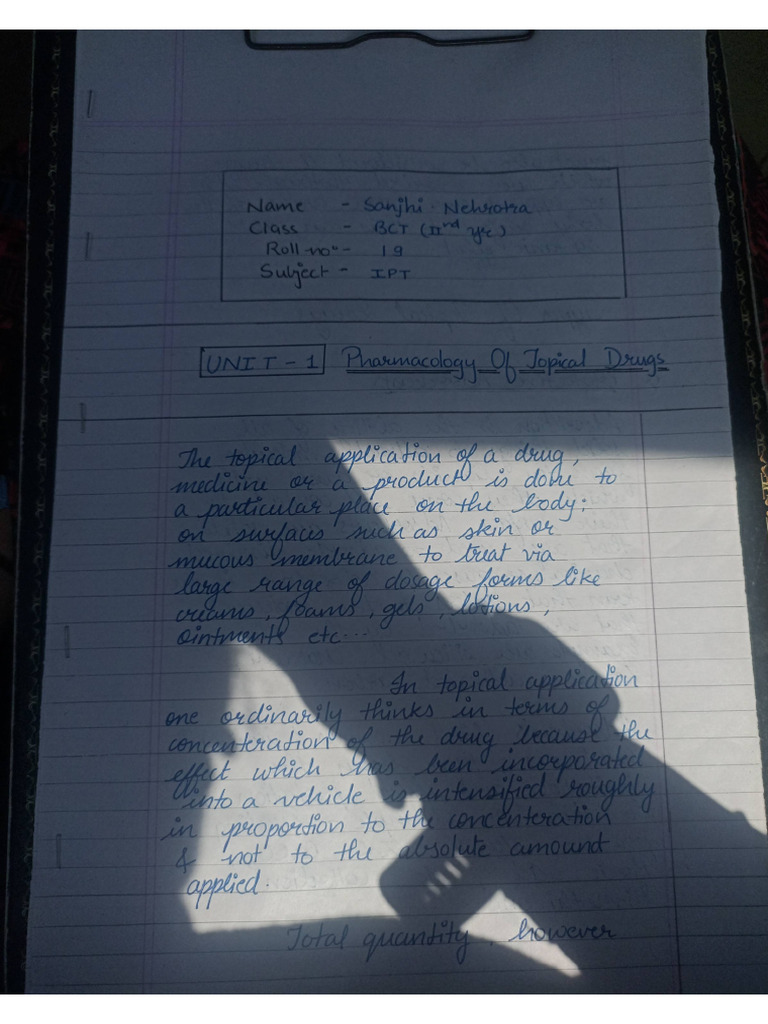 Name - Sanjhi Nehrotra
Class - BCT (IInd yr)
Roll no - 19
Subject - IPT
UNIT - 1 Pharmacology Of Topical Drugs
The topical application of a drug,
medicine or a product is done to
a particular place on the body;
on surfaces such as skin or
mucous membrane to treat via
large range of dosage forms like
creams, foams, gels, lotions,
ointments etc...
In topical application
one ordinarily thinks in terms of
concenteration of the drug because the
effect which has been incorporated
into a vehicle is intensified roughly
in proportion to the concenteration
& not to the absolute amound
applied.
Total quantity, however